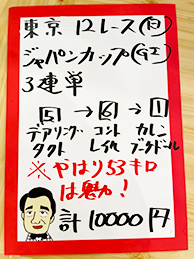 東京 12レース(日)
ジャパンカップ(GI)
3連単
5 → 6 → 1
デアリング コント カレン
タクト レイル ブーケドール
※やはり53キロ
は魅力!
計10000円